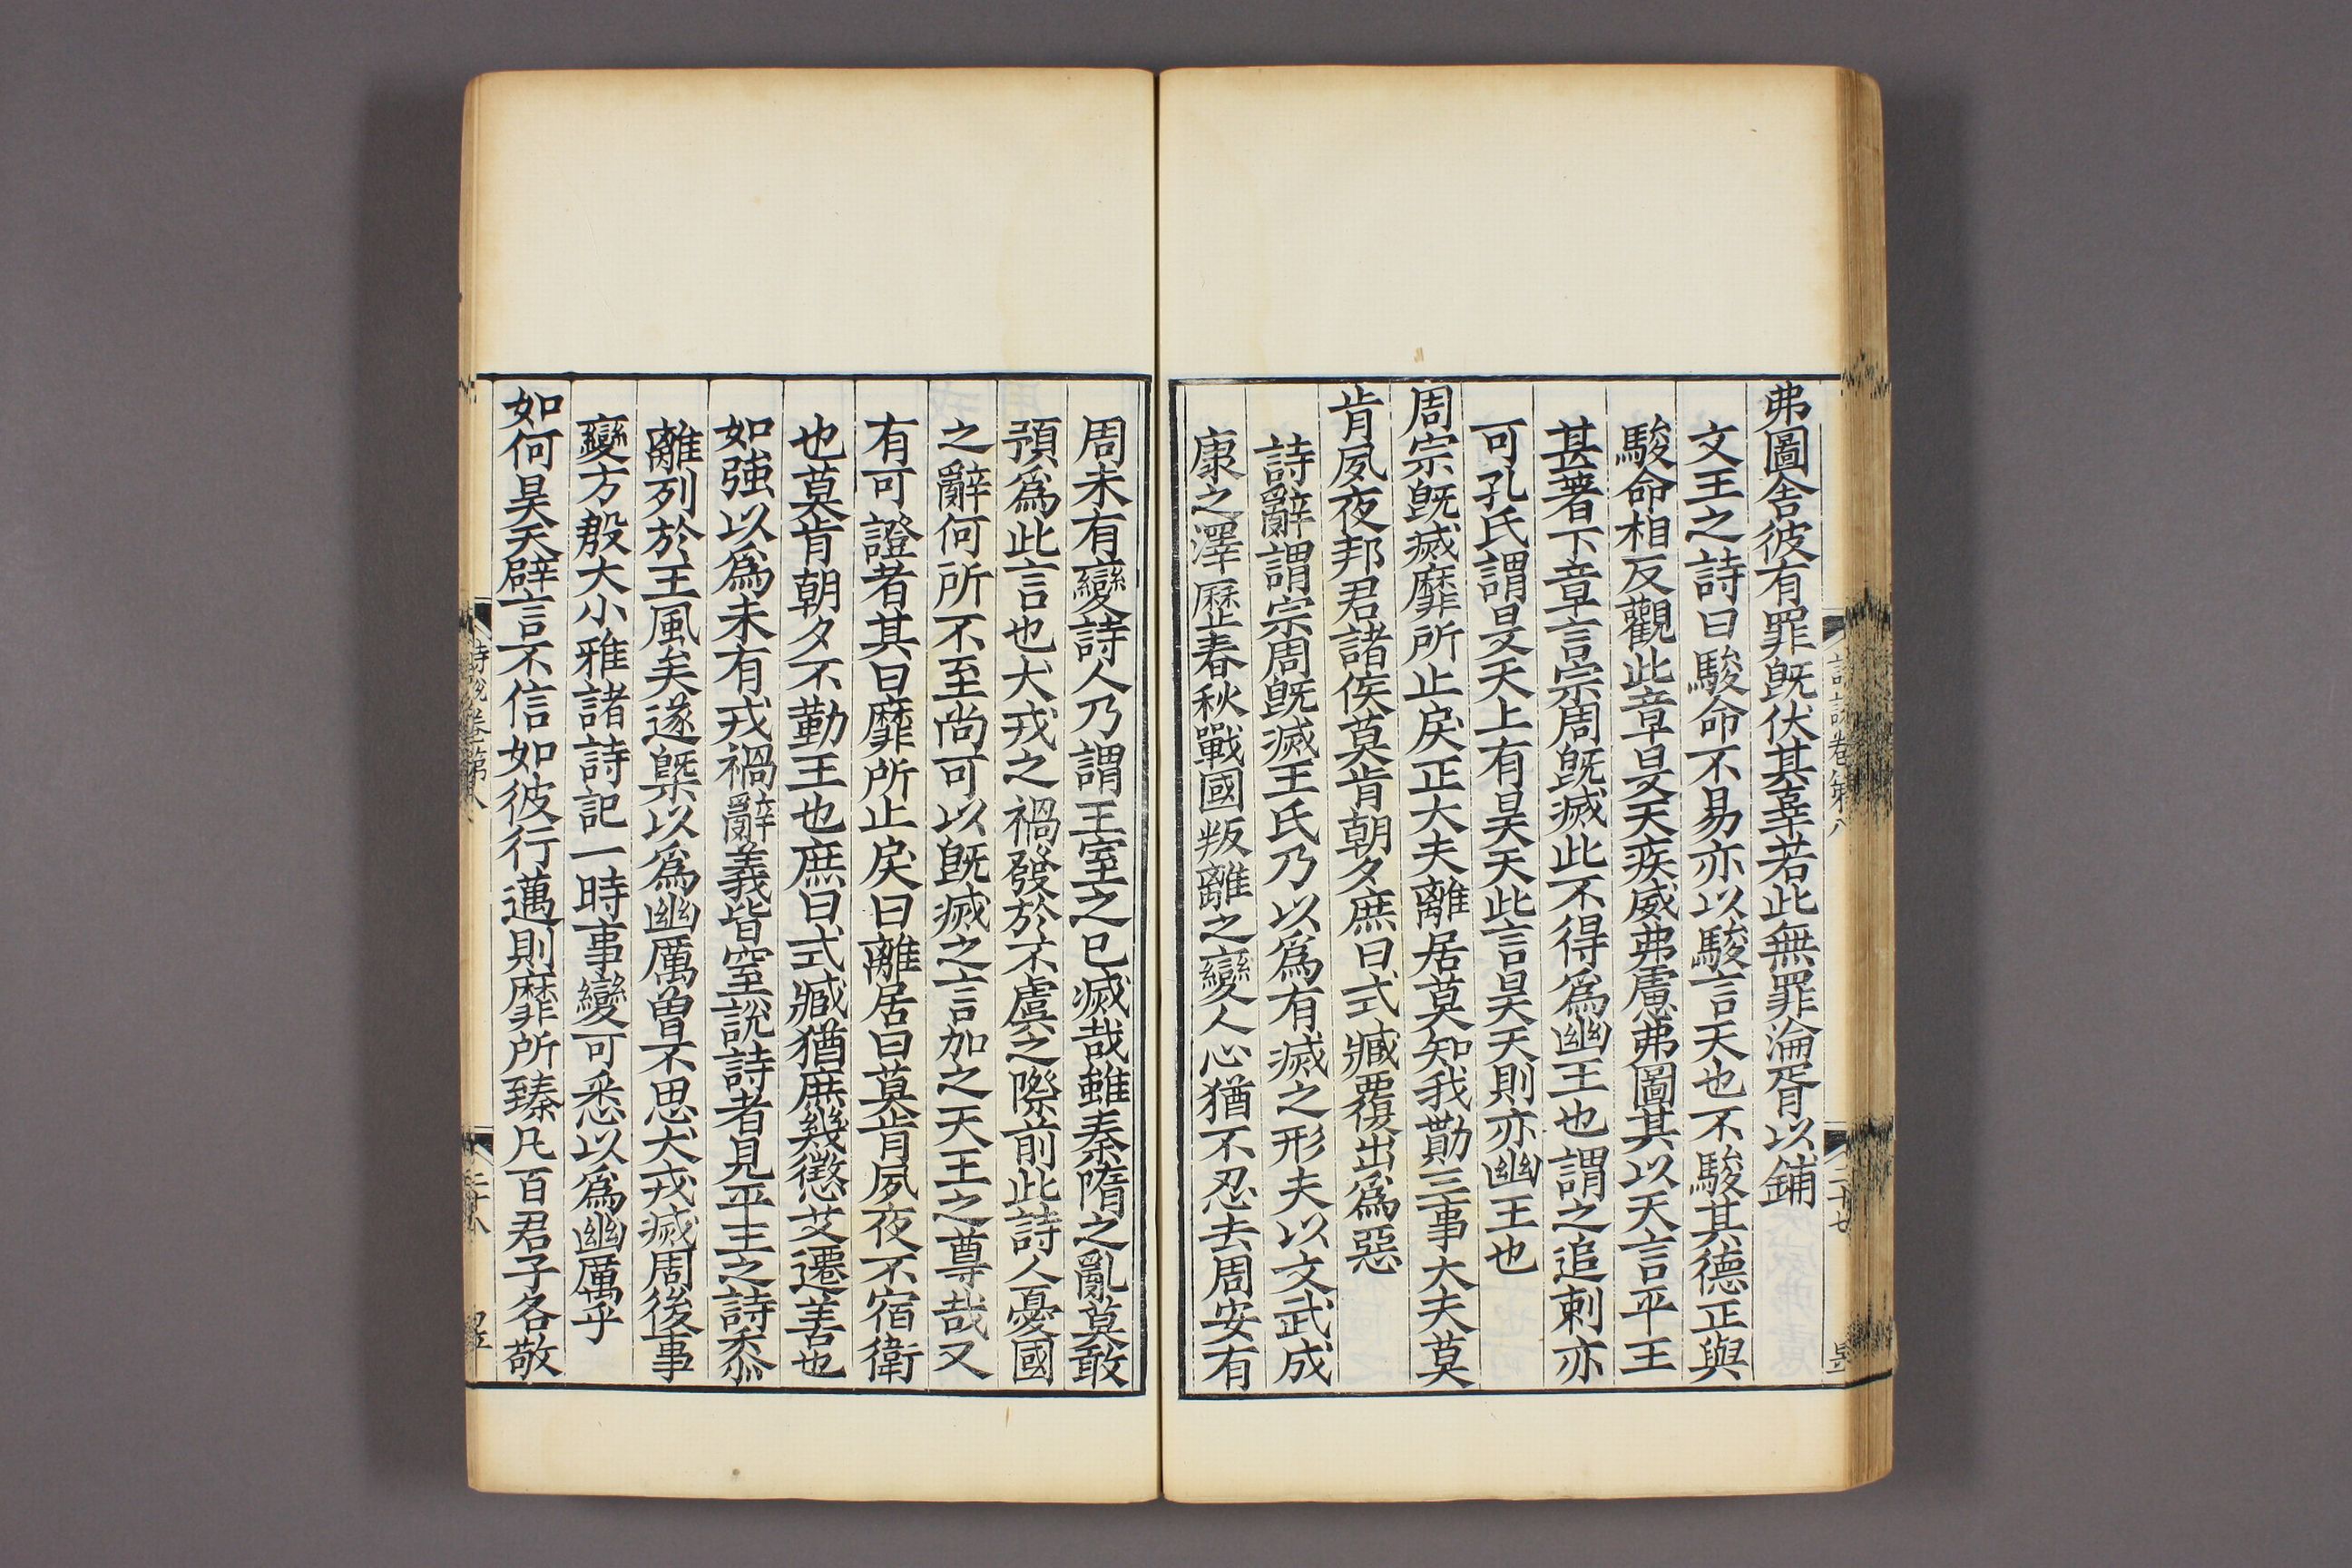 弗圖舍彼有罪旣伏其辜若此無罪淪胥以鋪
文王之詩曰駿命不易亦以駿言天也不駿其德正與
駿命相反觀此章旻天疾威弗慮弗圖其以天言平王
甚著下章言宗周旣滅此不得爲幽王也謂之追刺亦
可孔氏謂旻天上有昊天此言昊天則亦幽王也
周宗旣滅靡所止戾正大夫離居莫知我勩三事大夫莫
肯夙夜邦君諸侯莫肯朝夕庶曰式臧覆出爲惡
詩辭謂宗周旣滅王氏乃以爲有滅之形夫以文武成
康之澤歷春秋戰國叛離之變人心猶不忍去周安有
詩說卷第八
二十七
周未有變詩人乃謂王室之已滅哉雖秦隋之亂莫敢
預爲此言也犬戎之禍發於不虞之際前此詩人憂國
之辭何所不至尚可以旣滅之言加之天王之尊哉又
有可證者其曰靡所止戾曰離居曰莫肯夙夜不宿衛
也莫肯朝夕不勤王也庶曰式臧猶庶幾懲艾遷善也
如強以爲未有戎禍辭義皆窒說詩者見平王之詩黍
離列於王風矣遂槩以爲幽厲曽不思犬戎滅周後事
變方殷大小雅諸詩記一時事變可悉以爲幽厲乎
如何昊天辟言不信如彼行邁則靡所臻凡百君子各敬
詩說卷第八
二十八